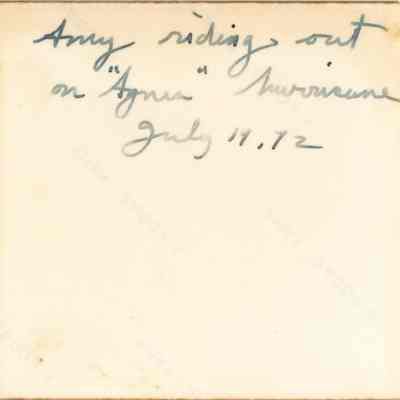 Amy riding out
on "Agnes" hurricane
July 19, 72